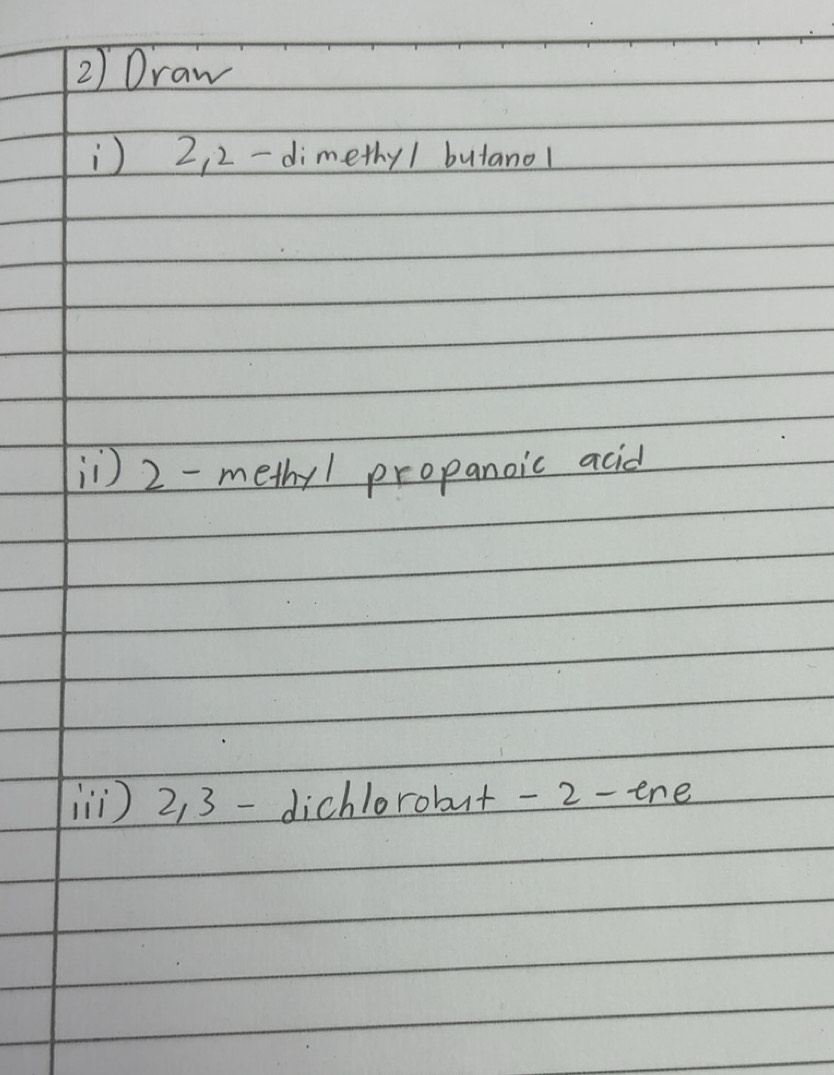 2) Draw
i) 2,2 - dimethyl butanol
ii) 2 - methyl propanoic acid
iii) 2,3 - dichlorobut - 2 - ene